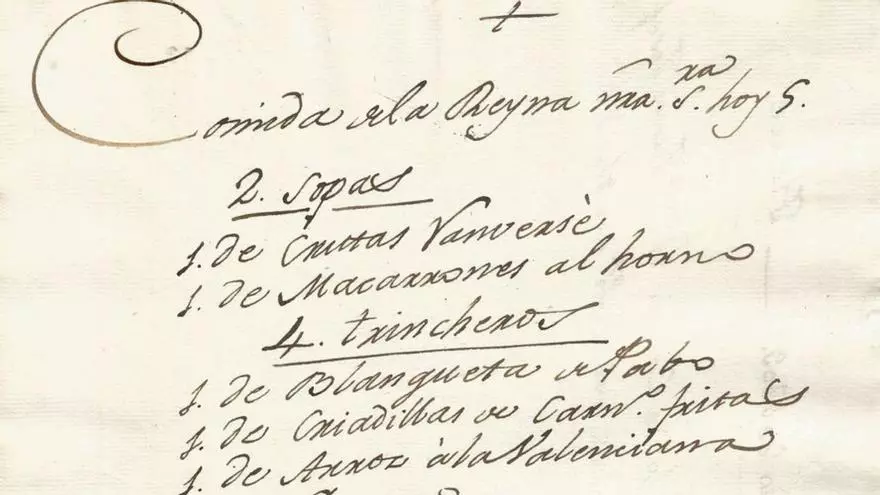 +
Comida de la Reyna nra. Sra. hoy 5.
2. Sopas
1. de Crittas Vanversè
1. de Macarrones al horno
4. trincheros
1. de Blangueta de Pabo
1. de Criadillas de Carno. fritas
1. de Arroz à la Valenciana